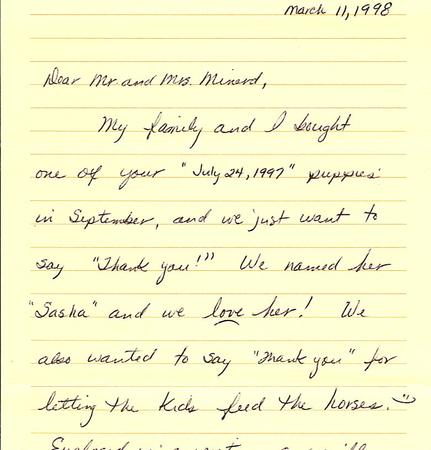 March 11, 1998
Dear Mr and Mrs. Minerd,
My family and I bought
one of your "July 24, 1997" puppies
in September, and we just want to
say "Thank you!" We named her
"Sasha" and we love her! We
also wanted to say "Thank you" for
letting the kids feed the horses.